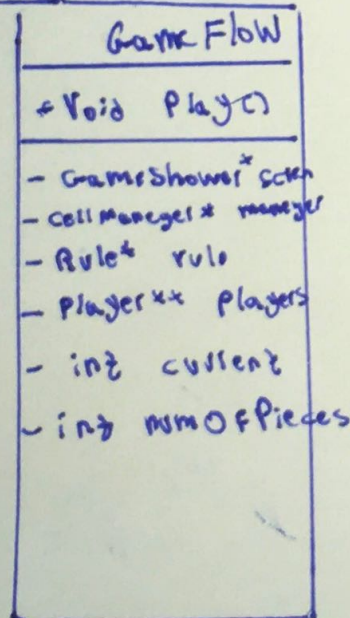 Game Flow
+ Void Play()
- GameShower* screen
- CellManeger* maneger
- Rule* rule
- Player** players
- int current
- int numOfPieces